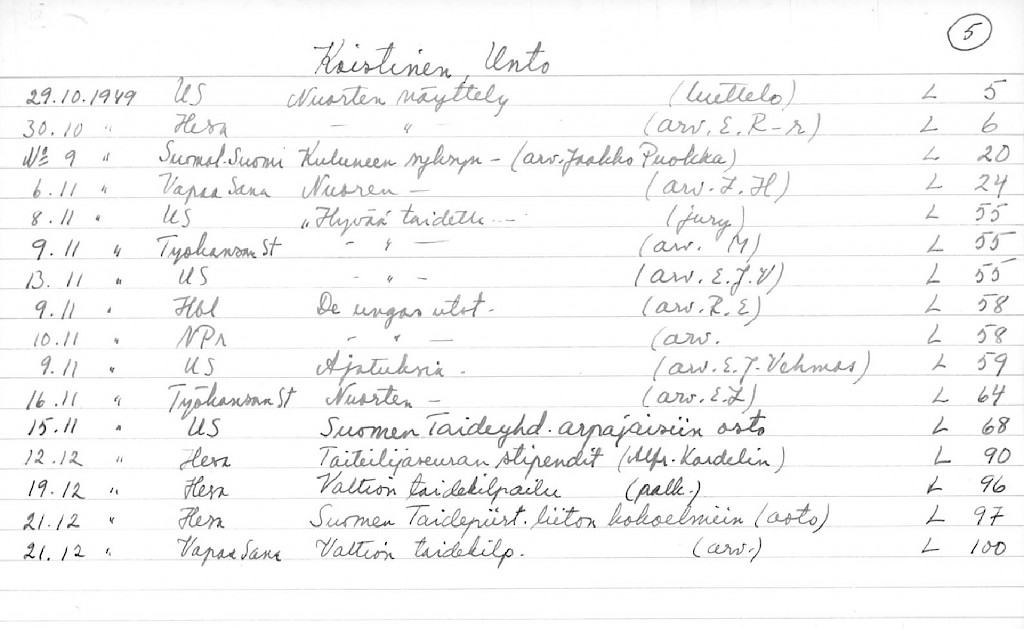 5
Koistinen, Unto
29.10.1949 US Nuorten näyttely (luettelo) L 5
30.10 " Hesa - " - (arv. E. R-r) L 6
No 9 " Suomal. Suomi Kuluneen syksyn - (arv. Jaakko Puokka) L 20
6.11 " Vapaa Sana Nuoren - (arv. L. H) L 24
8.11 " US "Hyvää taidetta - (jury) L 55
9.11 " Työkansan St - " - (arv. M) L 55
13.11 " US - " - (arv. E.J.V) L 55
9.11 " Hbl De ungas utst. (arv. R.E) L 58
10.11 " NPr - " - (arv. L 58
9.11 " US Ajatuksia - (arv. E.J. Vehmas) L 59
16.11 " Työkansan St Nuorten - (arv. E.L) L 64
15.11 " US Suomen Taideyhd. arpajaisiin osto L 68
12.12 " Hesa Taiteilijaseuran stipendit (Alfr. Kordelin) L 90
19.12 " Hesa Valtion taidekilpailu (palk.) L 96
21.12 " Hesa Suomen Taidepiirt. liiton kokoelmiin (osto) L 97
21.12 " Vapaa Sana Valtion taidekilp. (arv.) L 100